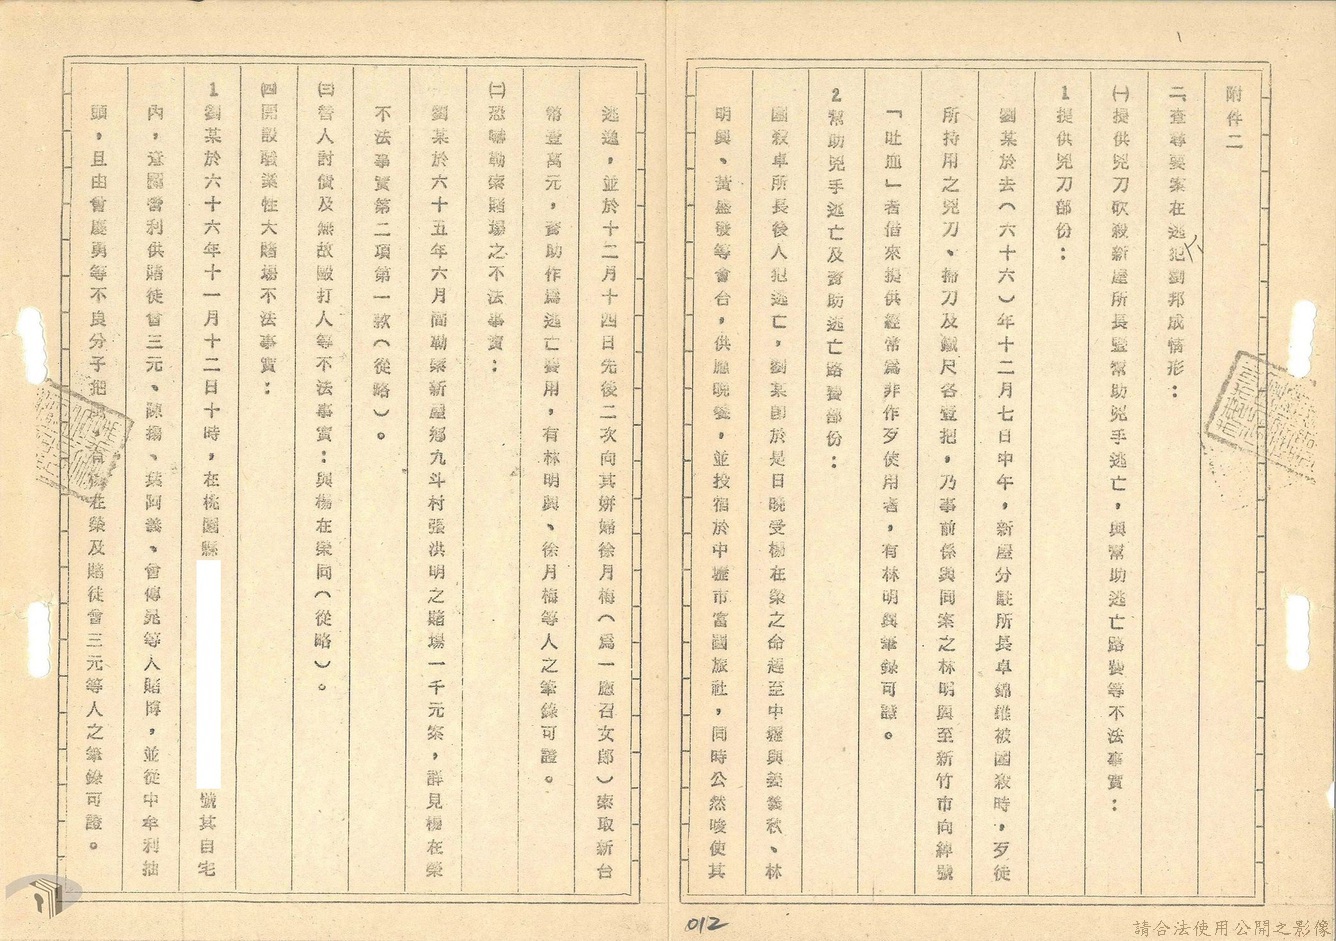 附件二
二、查尋要案在逃犯劉邦成情形：
㈠提供兇刀砍殺新屋所長暨幫助兇手逃亡，與幫助逃亡路費等不法事實：
1提供兇刀部份：
劉某於去（六十六）年十二月七日中午，新屋分駐所長卓錦維被圍殺時，歹徒
所持用之兇刀、掃刀及鐵尺各壹把，乃事前係與同案之林明與至新竹市向綽號
「吐血」者借來提供經常為非作歹使用者，有林明與筆錄可證。
2幫助兇手逃亡及資助逃亡路費部份：
圍殺卓所長後人犯逃亡，劉某即於是日晚受楊在榮之命趕至中壢與姜義秋、林
明與、黃盛發等會合，供應晚餐，並投宿於中壢市富國旅社，同時公然唆使其
逃逸，並於十二月十四日先後二次向其姘婦徐月梅（為一應召女郎）索取新台
幣壹萬元，資助作為逃亡費用，有林明與、徐月梅等人之筆錄可證。
㈡恐嚇勒索賭場之不法事實：
劉某於六十五年六月間勒索新屋鄉九斗村張洪明之賭場一千元案，詳見楊在榮
不法事實第二項第一款（從略）。
㈢替人討債及無故毆打人等不法事實：與楊在榮同（從略）。
㈣開設職業性大賭場不法事實：
1劉某於六十六年十一月十二日十時，在桃園縣 號其自宅
內，意圖營利供賭徒曾三元、陳揚、葉阿義、曾傳晃等人賭博，並從中牟利抽
頭，且由曾慶勇等不良分子把 ，有 在榮及賭徒曾三元等人之筆錄可證。
012
請合法使用公開之影像